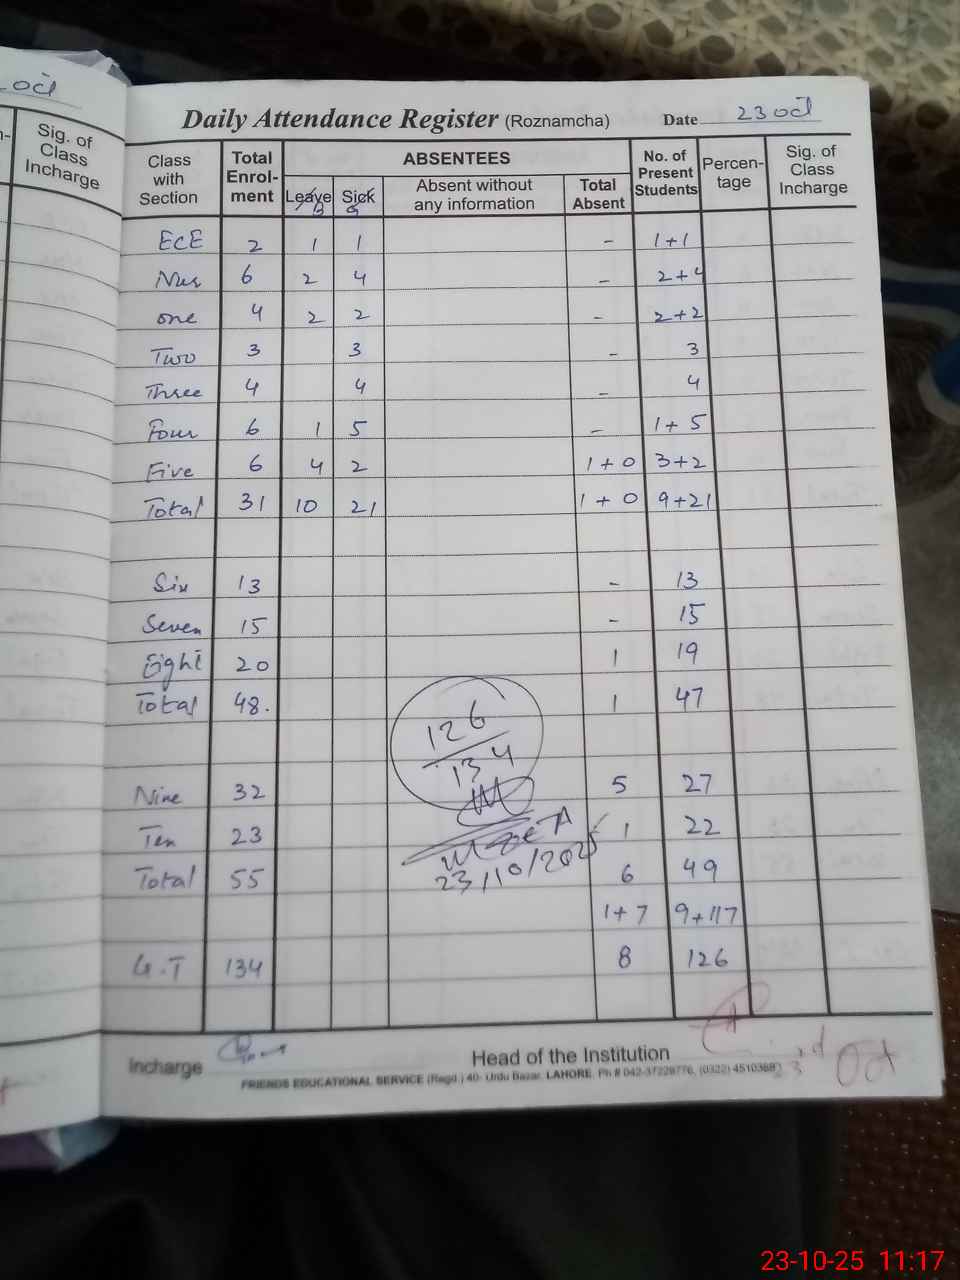 oct
Sig. of
Class
Incharge
Daily Attendance Register (Roznamcha) Date 23 oct
Class with Section Total Enrol-ment ABSENTEES No. of Present Students Percen-tage Sig. of Class Incharge
Leave Sick Absent without any information Total Absent
B G
ECE 2 1 1 - 1+1
Nur 6 2 4 - 2+4
one 4 2 2 - 2+2
Two 3 3 - 3
Three 4 4 - 4
Four 6 1 5 - 1+5
Five 6 4 2 1+0 3+2
Total 31 10 21 1+0 9+21
Six 13 - 13
Seven 15 - 15
Eight 20 1 19
Total 48. 1 47
126
134
Nine 32 5 27
Ten 23 1 22
23/10/2025
Total 55 6 49
1+7 9+117
G.T 134 8 126
Incharge Head of the Institution
23rd Oct
FRIENDS EDUCATIONAL SERVICE (Regd.) 40- Urdu Bazar, LAHORE. Ph # 042-37228776, (0322) 4510368
23-10-25 11:17